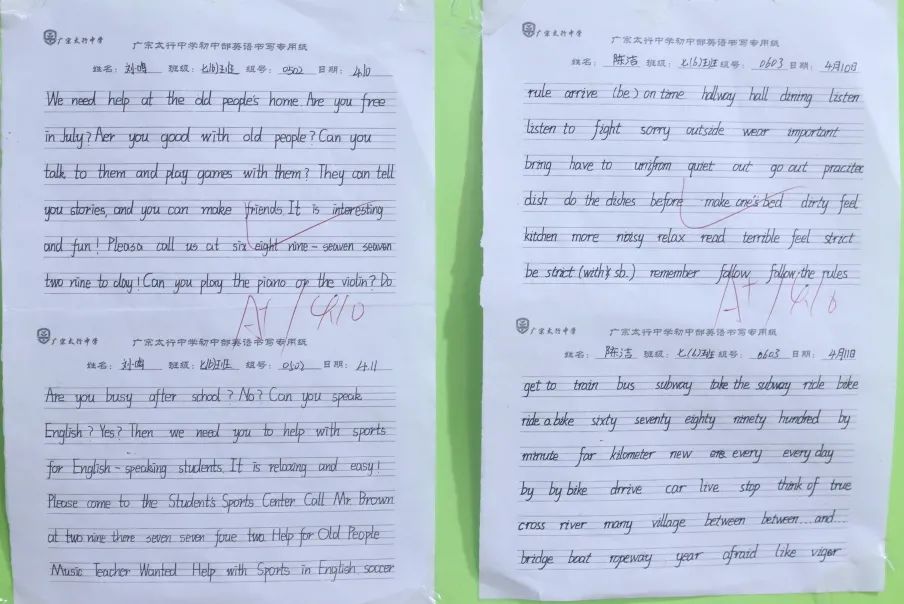 广宗太行中学
广宗太行中学初中部英语书写专用纸
姓名: 刘鸣 班级: 七(6)班 组号: 0502 日期: 4.10
We need help at the old people's home. Are you free
in July? Aer you good with old people? Can you
talk to them and play games with them? They can tell
you stories, and you can make friends. It is interesting
and fun! Pleasa call us at six eight nine-seaven seaven
two nine to day! Can you play the piano or the violin? Do
A+ / 4/10
广宗太行中学
广宗太行中学初中部英语书写专用纸
姓名: 刘鸣 班级: 七(6)班 组号: 0502 日期: 4.11
Are you busy after school? No? Can you speak
English? Yes? Then we need you to help with sports
for English-speaking students. It is relaxing and easy!
Please come to the Student's Sports Center Call Mr. Brown
at two nine there seven seven foue two Help for Old People
Music Teacher Wanted Help with Sports in English soccer
广宗太行中学
广宗太行中学初中部英语书写专用纸
姓名: 陈洁 班级: 七(6)班 组号: 0603 日期: 4月10日
rule arrive (be) on time hallway hall dining listen
listen to fight sorry outside wear important
bring have to unifrom quiet out go out praciter
dish do the dishes before make one's bed dirty feel
kitchen more noisy relax read terrible feel strict
be strict (with sb.) remember follow follow the rules
A+ / 4/10
广宗太行中学
广宗太行中学初中部英语书写专用纸
姓名: 陈洁 班级: 七(6)班 组号: 0603 日期: 4月11日
get to train bus subway take the subway ride bike
ride a bike sixty seventy eighty ninety hundred by
minute far kilometer new every every day
by by bike drrive car live stop think of true
cross river many village between between...and...
bridge boat ropeway year afraid like viger